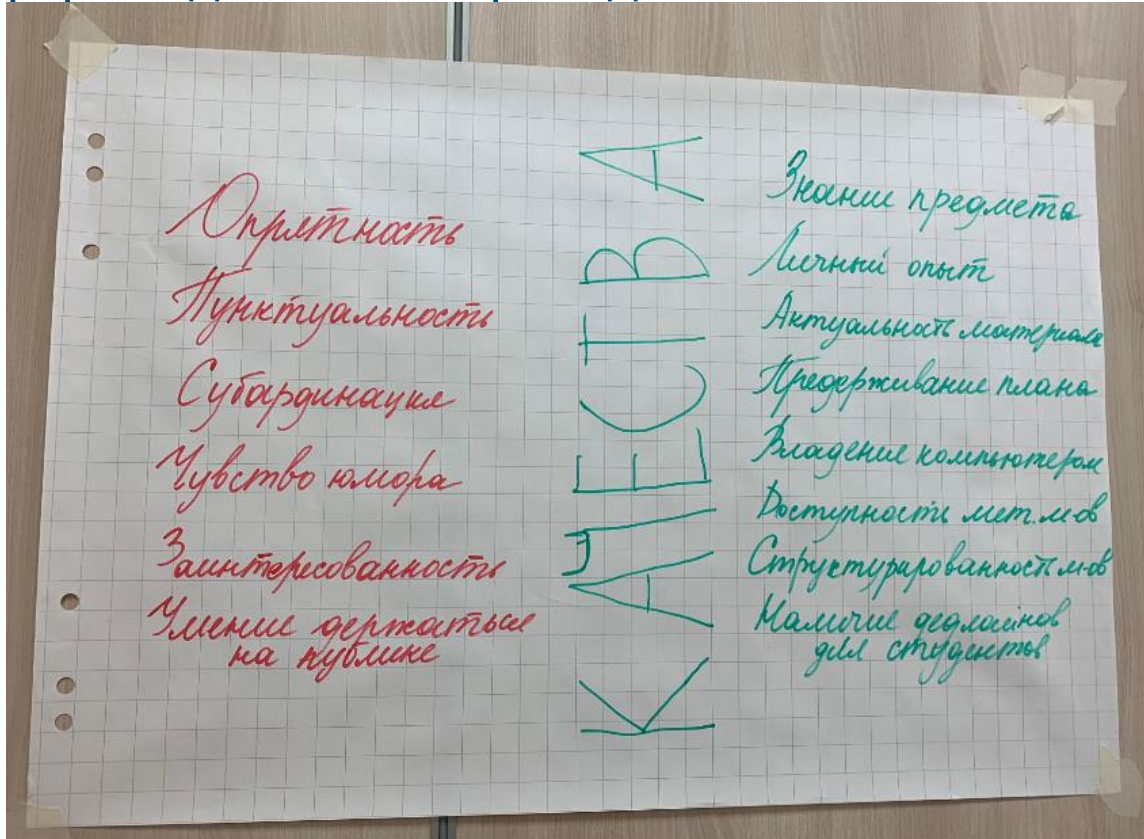 Опрятность
Пунктуальность
Субардинация
Чувство юмора
Заинтересованность
Умение держаться
на публике
КАЧЕСТВА
Знание предмета
Личный опыт
Актуальность материала
Предерживание плана
Владение компьютером
Доступность мет.м-ов
Структурированность м-ов
Наличие дедлайнов
для студентов